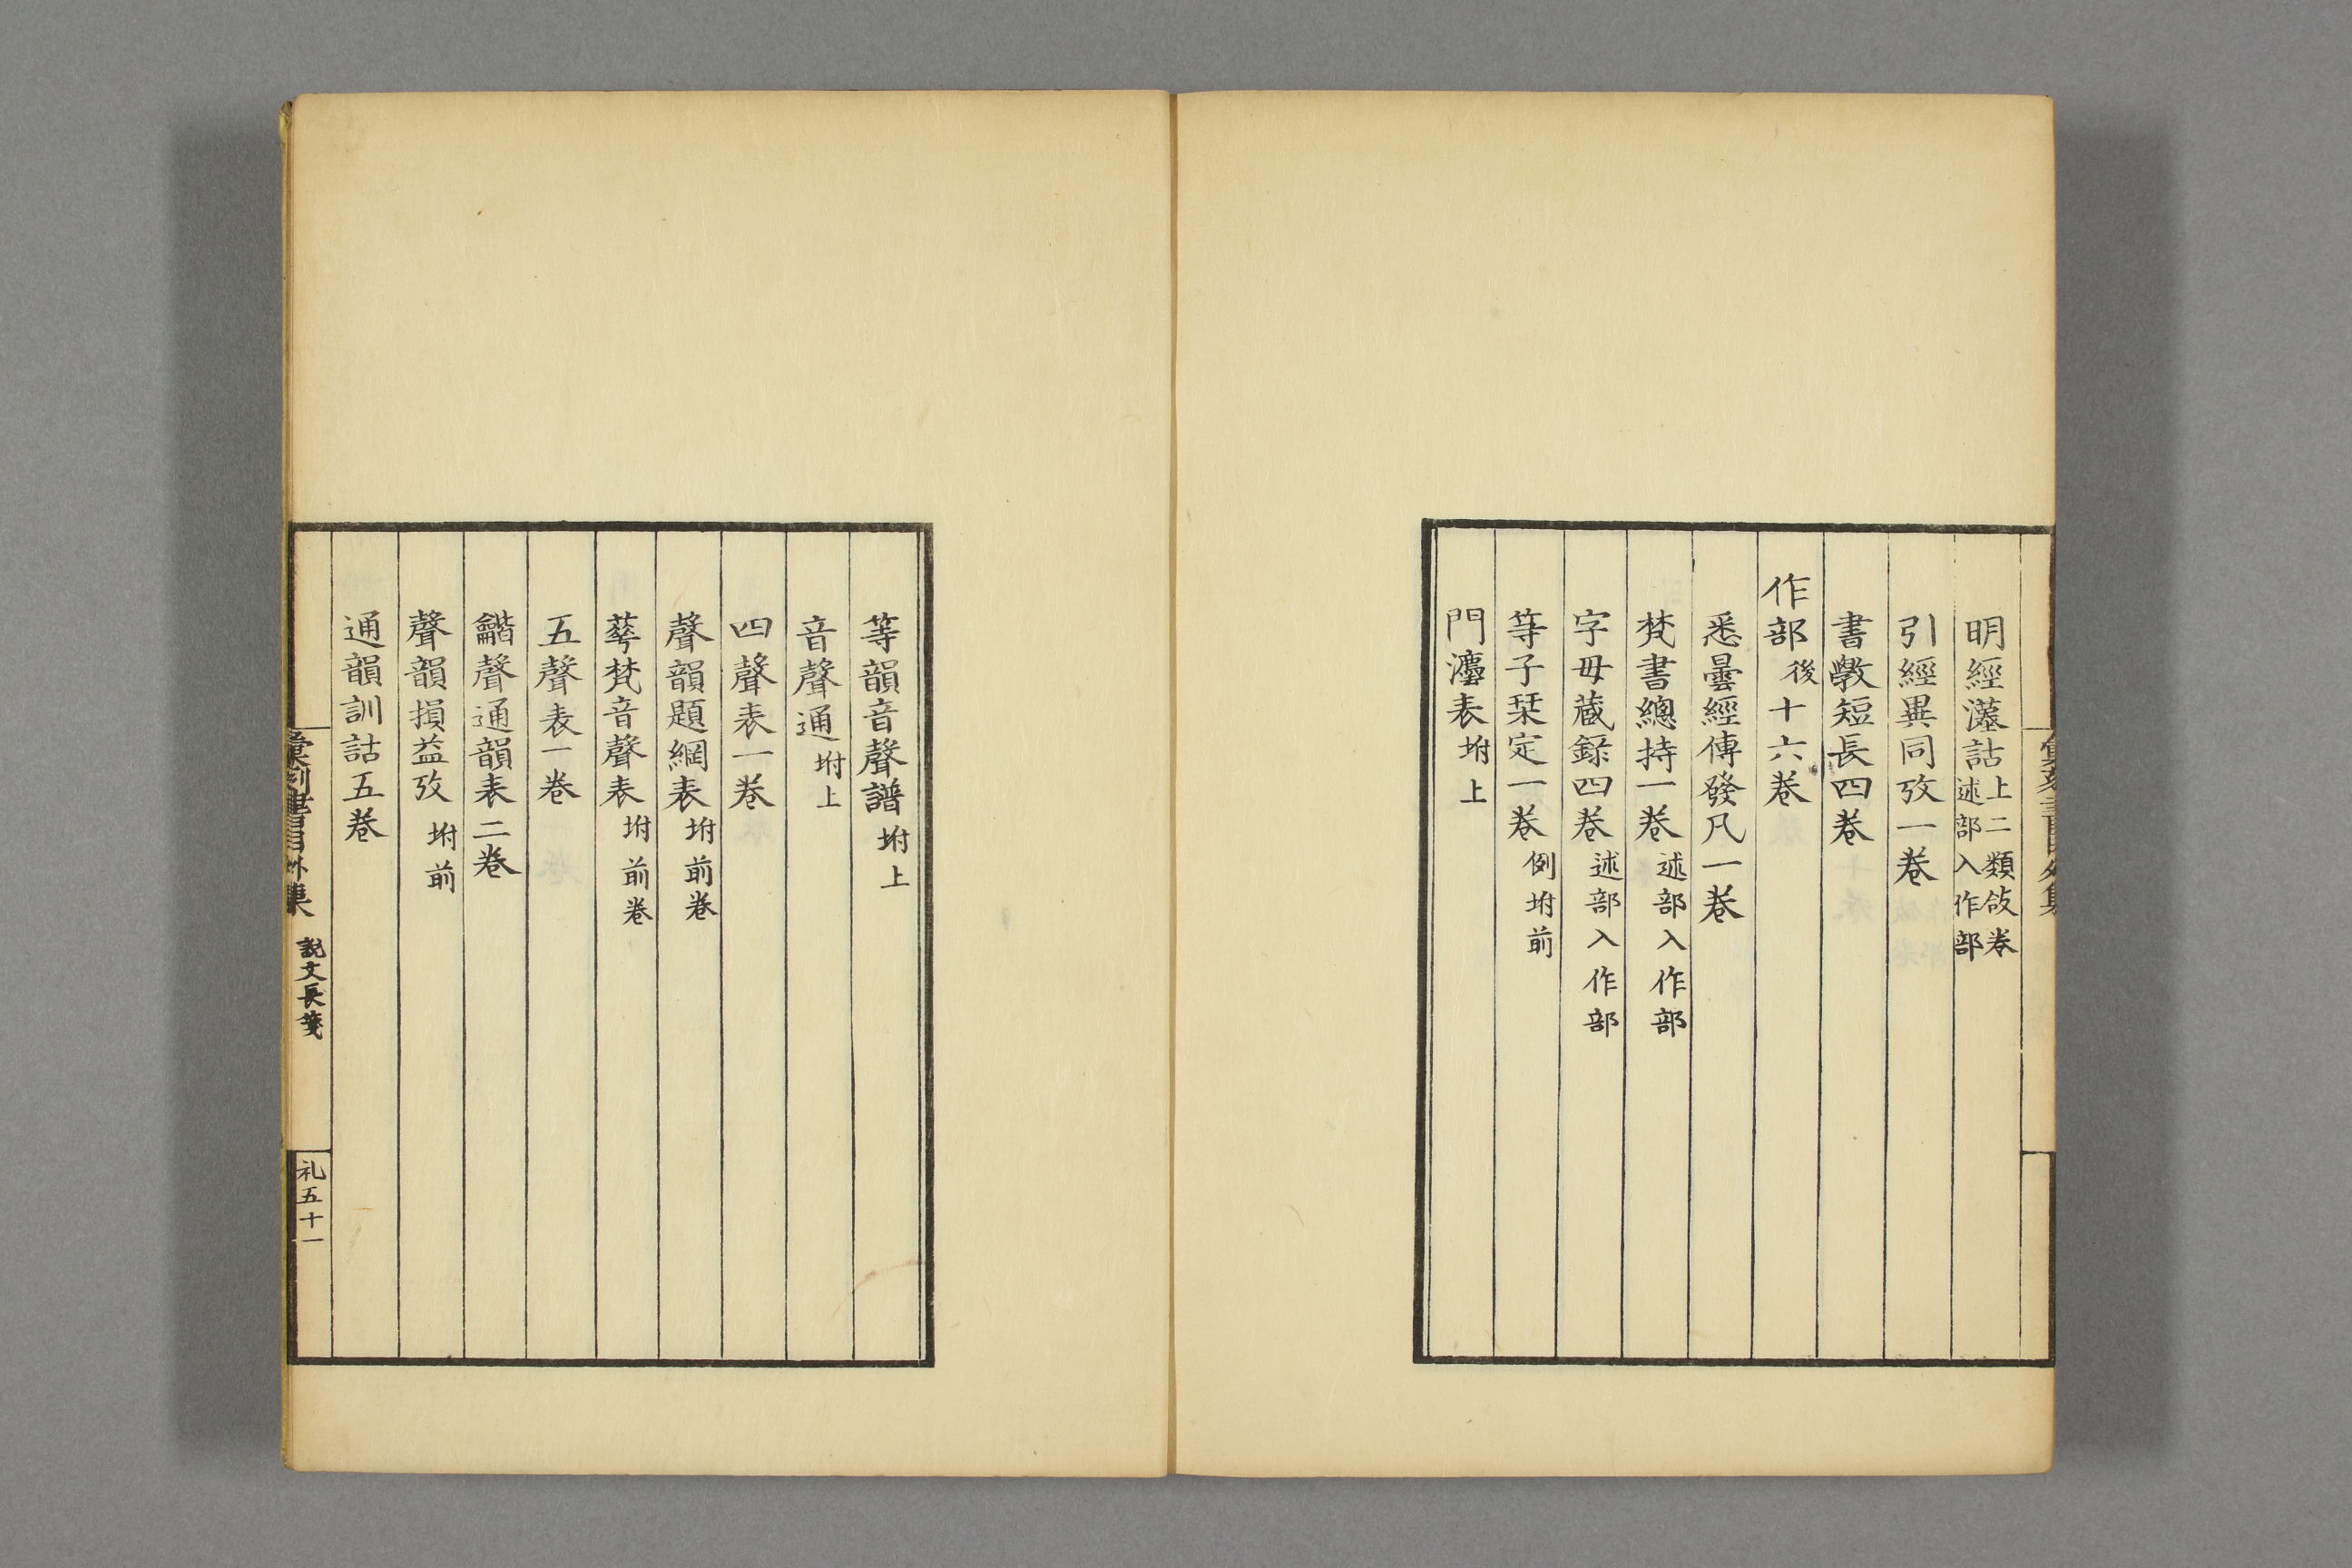 明經漢詁上二類攷卷述部入作部
引經異同攷一卷
書斆短長四卷
作部後十六卷
悉曇經傳發凡一卷
梵書總持一卷述部入作部
字毋蔵録四卷述部入作部
等子栞定一卷例坿前
門灋表坿上
等韻音聲譜坿上
音聲通坿上
四聲表一卷
聲韻題綱表坿前卷
華梵音聲表坿前卷
五聲表一卷
龤聲通韻表二卷
聲韻損益攷坿前
通韻訓詁五卷
彙刻書目外集 説文長箋 礼五十一